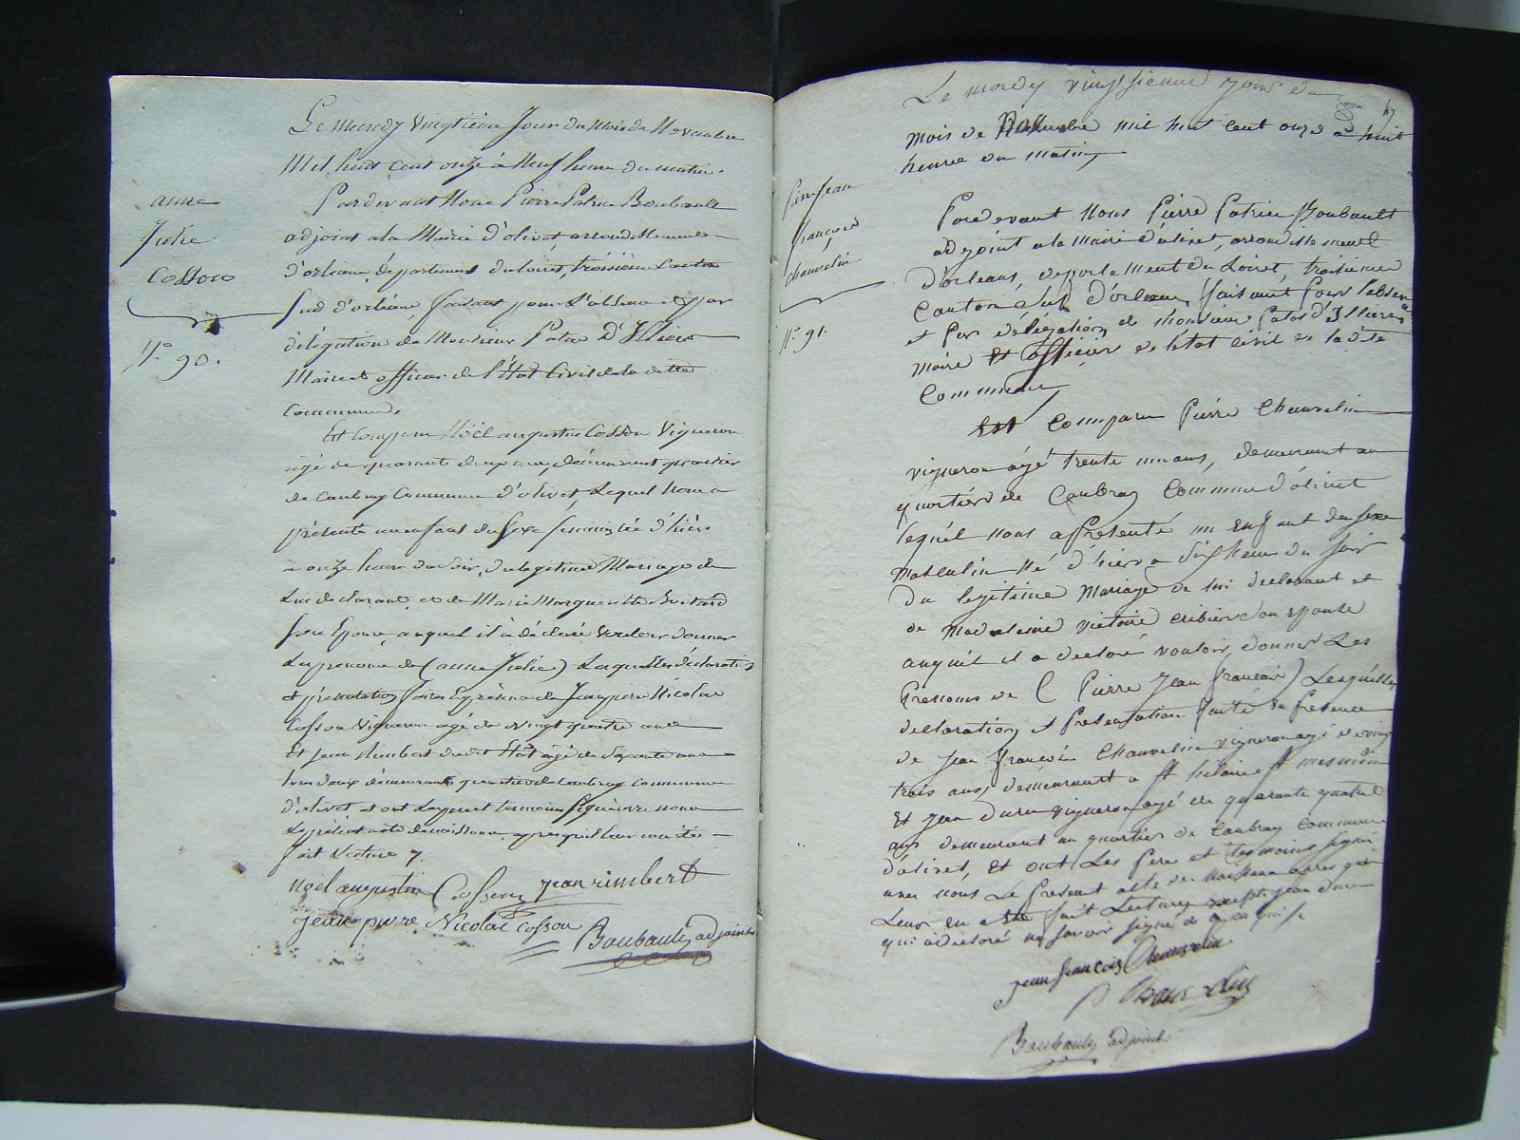 Le mercredy vingtieme Jour du mois de Novembre
Mil huit cent onze à Neuf heure du matin.
Pardevant Nous Pierre Patrice Boubault
adjoint a la Mairie d'olivet arrondissement
d'orleans, département du loiret, troisième Canton
Sud d'orléans, faisant pour l'absence et par
délégation de Monsieur Patas D'Illiers
Maire et officier de l'état Civil de la ditte
Commune,
anne
Julie
Cosson
N.° 90.
Est comparu Noël augustin Cosson Vigneron
agé de quarante deux ans, demeurant quartier
de Caubray Commune d'olivet, Lequel Nous a
présenté un enfant du Sexe feminin née d'hier
a onze heure du soir, du legitime Mariage de
Lui déclarant, et de Marie Marguerite Boitard
Son Epouse, auquel il à déclaré Vouloir donner
Les prenoms de (anne Julie) Lesquelles déclaration
et présentation faites En présence de Jean pierre Nicolas
Cosson Vigneron agé de Vingt quatre ans
Et Jean Rimbert du dit état agé de Soixante ans
tous deux demeurants quartier de Caubray Commune
d'olivet et ont Le pere et temoins Signé avec nous
Le présent acte de naissance apres que leur en a été
fait lecture
Noel augustin Cosson jean rimbert
jean pierre Nicolas Cosson
Boubault adjoint
Le mercredy vingtieme jour du
mois de Novembre mil huit cent onze a huit
heures du matin,
Pierre Jean
françois
chauvelin
N.° 91.
Pardevant Nous Pierre Patrice Boubault
adjoint a la mairie d'olivet, arrondissement
D'orleans, departement du Loiret, troisieme
Canton Sud D'orleans, faisant Pour l'absence
et Par délégation de Monsieur Patas d'Illiers
maire et officier de l'etat civil de la dite
Commune,
Est Comparu Pierre Chauvelin
vigneron agé trente un ans, demeurant au
quartier de Caubray Commune d'olivet
lequel nous a Présenté un enfant du Sexe
Masculin Né d'hier a dix heures du soir
Du legitime Mariage de lui declarant et
de Madeleine victoire cribier son epouse
auquel il a declaré vouloir donner Les
Prénoms de ( Pierre Jean françois ) Lesquelles
declaration et Présentation faite En Présence
de Jean françois Chauvelin vigneron agé de vingt
trois ans, demeurant a St hilaire St mesmin
Et Jean Duru vigneron agé de quarante quatre
ans demeurant au quartier de Caubray Commune
d'olivet, Et ont Les Pere et temoins signé
avec nous Le Present acte de Naissance apres que
Leur en a été fait Lecture excepté jean duru
qui a declaré ne savoir signé de ce enquis
jean françois Chauvelin
P Chauvelin
Boubault adjoint